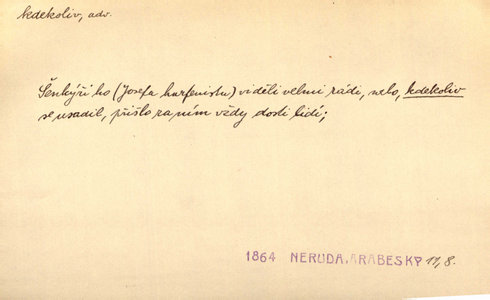 kdekoliv, adv.
Šenkýři ho (Josefa harfenistu) viděli velmi rádi, nebo, kdekoliv
se usadil, přišlo za ním vždy dosti lidí;
1864 NERUDA, ARABESKY 17, 8.